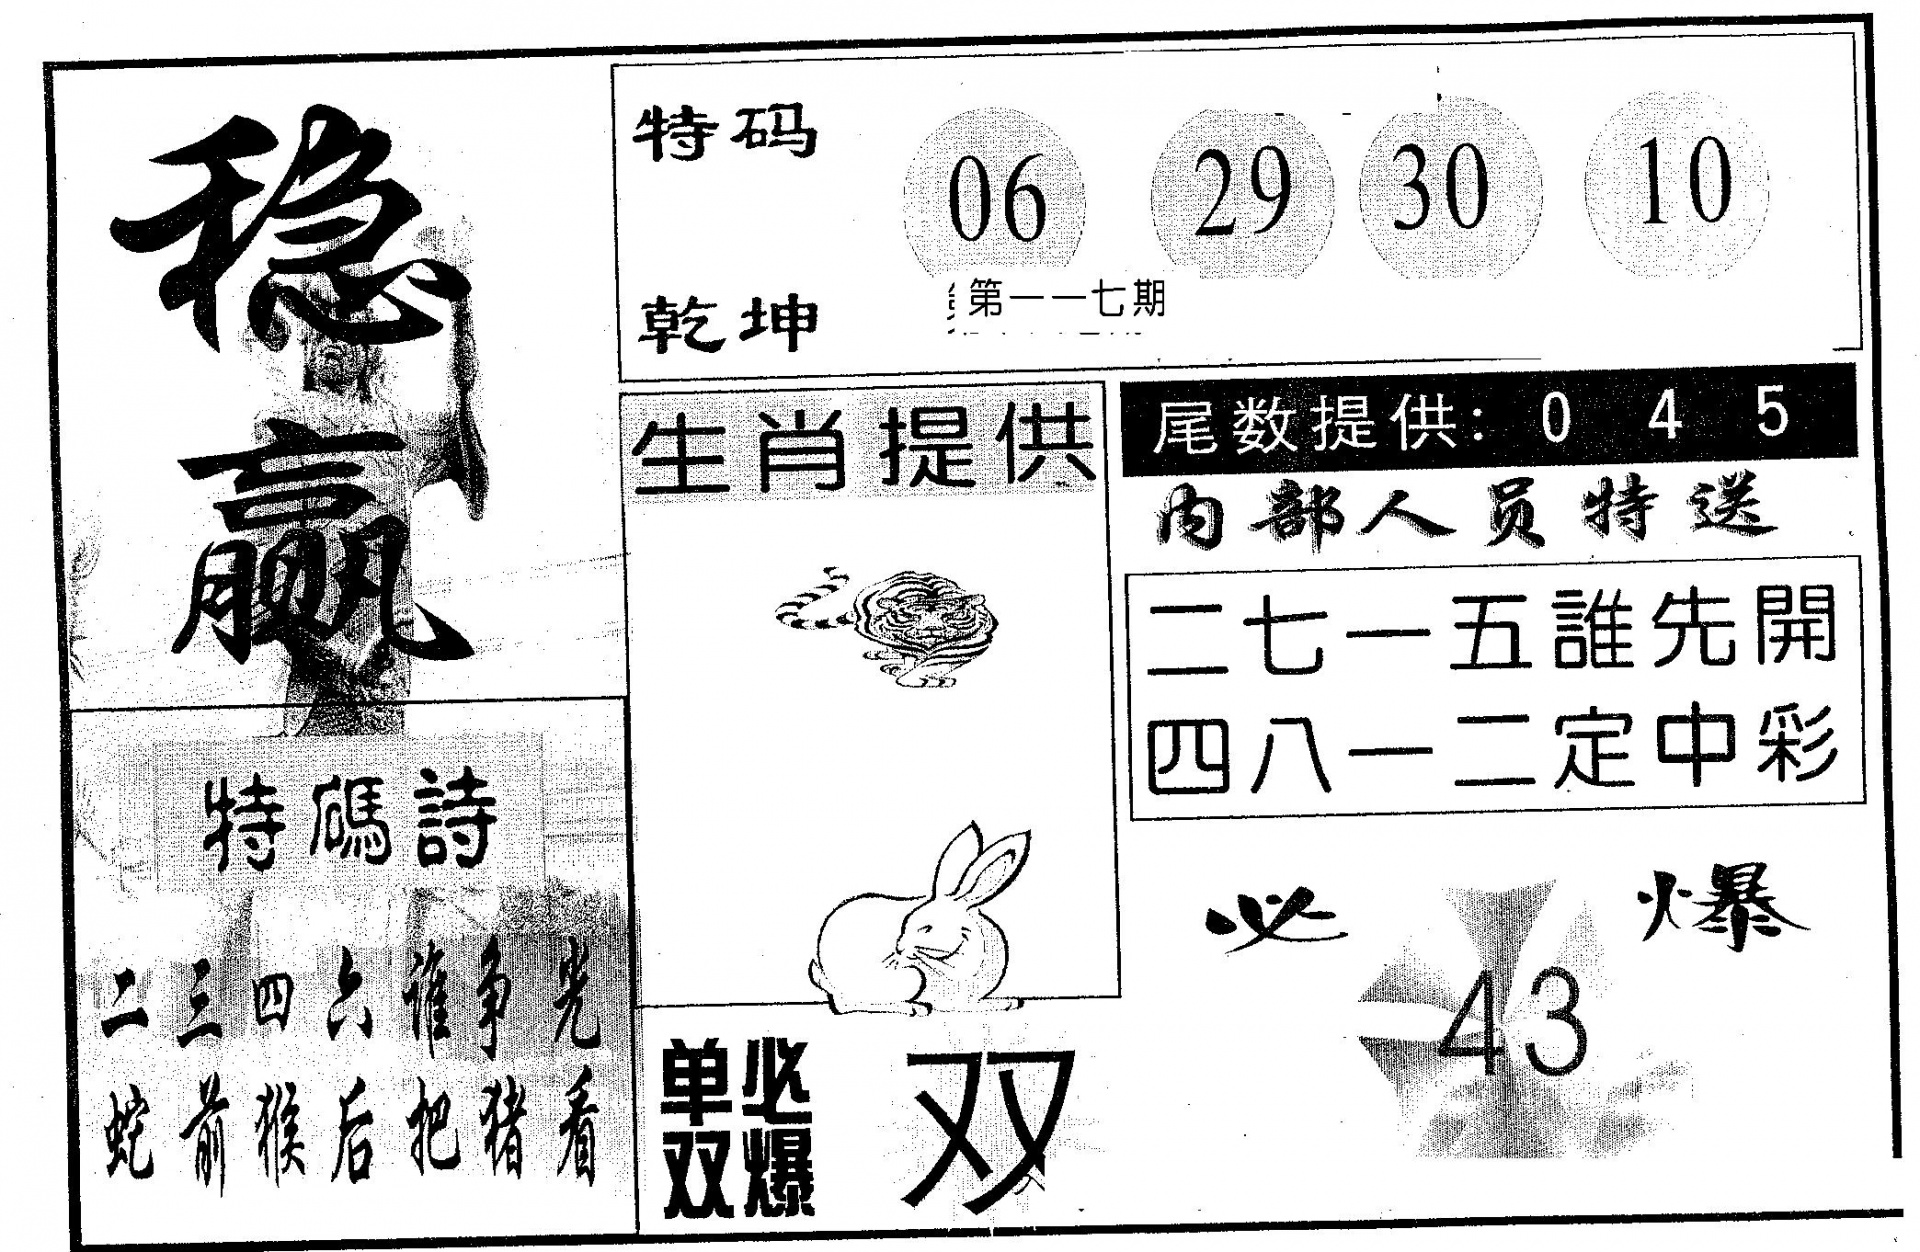 稳赢
特码
乾坤
06 29 30 10
第一一七期
生肖提供
尾数提供: 0 4 5
内部人员特送
二七一五誰先開
四八一二定中彩
特碼詩
二三四六谁争光
蛇前猴后把猪看
单双
必爆
双
必爆
43